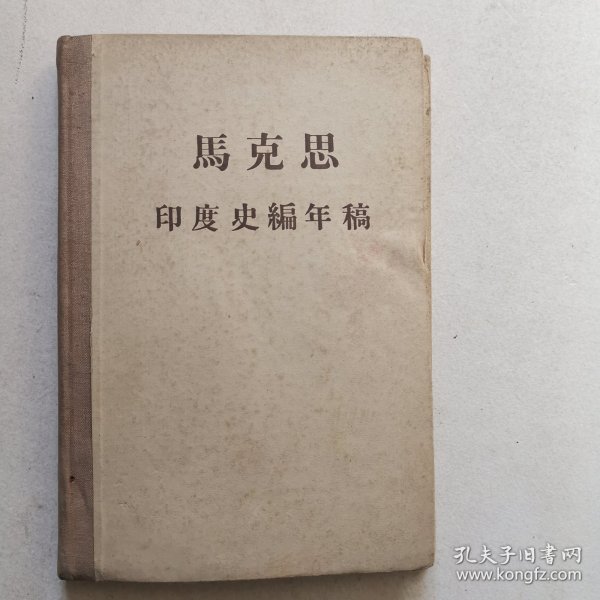 馬克思
印度史編年稿
孔夫子旧書网
www.kongfz.com